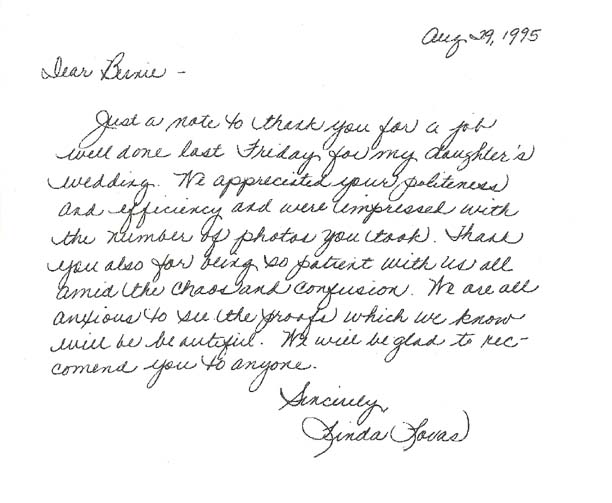 Aug 29, 1995
Dear Bernie -
Just a note to thank you for a job
well done last Friday for my daughter's
wedding. We appreciated your politeness
and efficiency and were impressed with
the number of photos you took. Thank
you also for being so patient with us all
amid the chaos and confusion. We are all
anxious to see the proofs which we know
will be beautiful. We will be glad to rec-
comend you to anyone.
Sincerely,
Linda Lovas